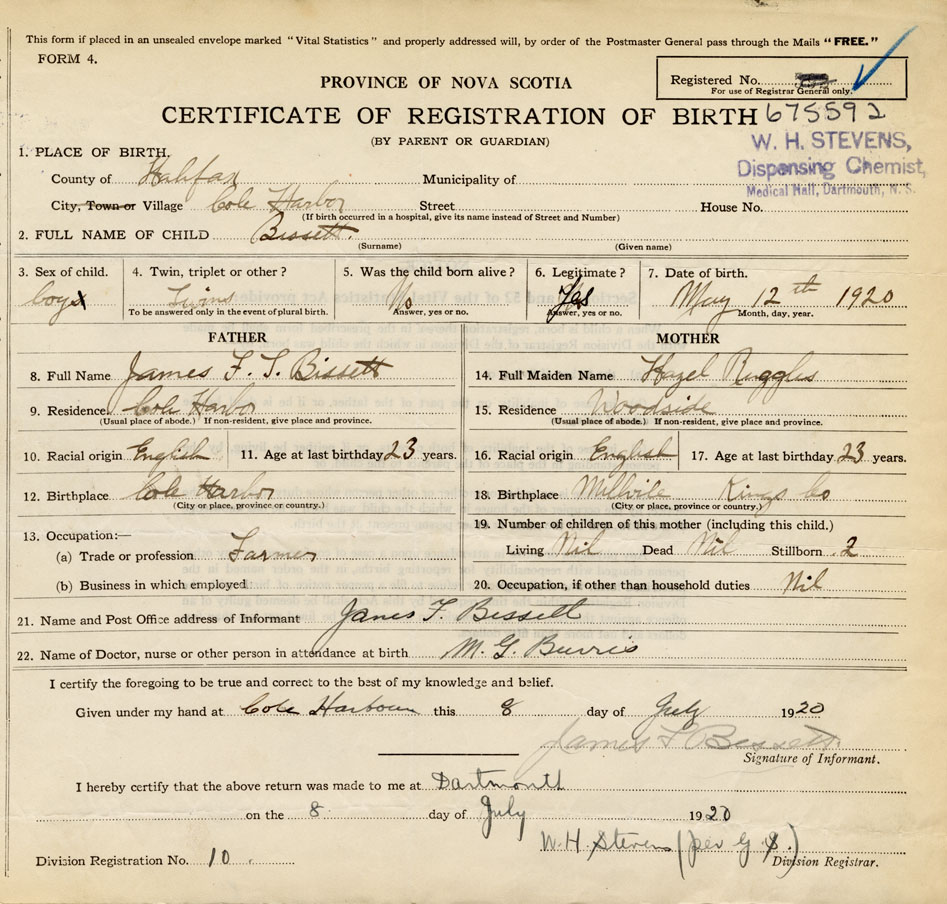 This form if placed in an unsealed envelope marked "Vital Statistics" and properly addressed will, by order of the Postmaster General pass through the Mails "FREE."
FORM 4.
Registered No.
For use of Registrar General only.
PROVINCE OF NOVA SCOTIA
CERTIFICATE OF REGISTRATION OF BIRTH 675592
(BY PARENT OR GUARDIAN)
W. H. STEVENS,
Dispensing Chemist,
Medical Hall, Dartmouth, N. S.
1. PLACE OF BIRTH.
County of Halifax Municipality of
City, Town or Village Cole Harbor Street House No.
(If birth occurred in a hospital, give its name instead of Street and Number)
2. FULL NAME OF CHILD Bissett.
(Surname) (Given name)
3. Sex of child. 4. Twin, triplet or other? 5. Was the child born alive? 6. Legitimate? 7. Date of birth.
boys Twins No Yes May 12th 1920
To be answered only in the event of plural birth. Answer, yes or no. Answer, yes or no. Month, day, year.
FATHER MOTHER
8. Full Name James F. T. Bissett 14. Full Maiden Name Hazel Ruggles
9. Residence. Cole Harbor 15. Residence Woodside
(Usual place of abode.) If non-resident, give place and province. (Usual place of abode.) If non-resident, give place and province.
10. Racial origin English 11. Age at last birthday 23 years. 16. Racial origin English 17. Age at last birthday 23 years.
12. Birthplace Cole Harbor 18. Birthplace Millvile Kings Co
(City or place, province or country.) (City or place, province or country.)
13. Occupation:— 19. Number of children of this mother (including this child.)
(a) Trade or profession Farmer Living Nil Dead Nil Stillborn 2
(b) Business in which employed 20. Occupation, if other than household duties Nil
21. Name and Post Office address of Informant James F. Bissett
22. Name of Doctor, nurse or other person in attendance at birth M. G. Burris
I certify the foregoing to be true and correct to the best of my knowledge and belief.
Given under my hand at Cole Harbour this 8 day of July 1920
James F Bissett
Signature of Informant.
I hereby certify that the above return was made to me at Dartmouth
on the 8 day of July 1920
W. H. Stevens (per G. S.)
Division Registration No. 10 Division Registrar.